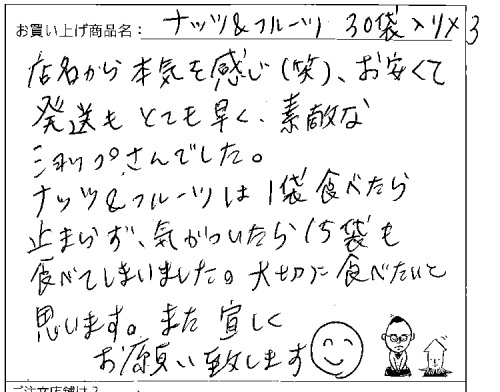 お買い上げ商品名: ナッツ&フルーツ 30袋入り×3
店名から本気を感じ(笑)、お安くて
発送もとても早く、素敵な
ショップさんでした。
ナッツ&フルーツは1袋食べたら
止まらず、気がついたら15袋も
食べてしまいました。大切に食べたいと
思います。また宜しく
お願い致します